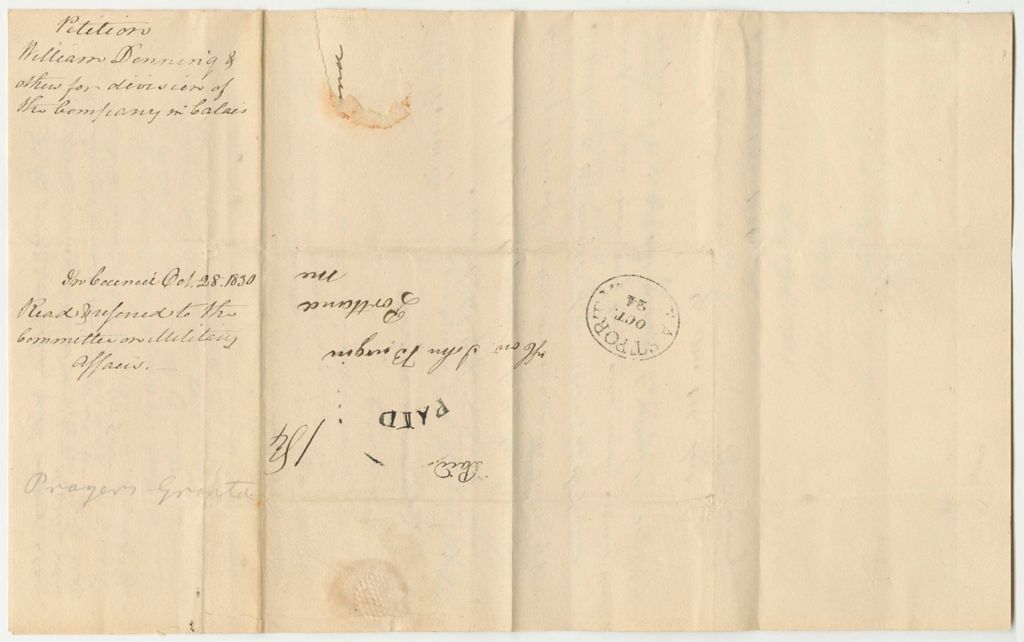 Petition
William Denning &
others for division of
the Company in Calais
In Council Oct. 28. 1830
Read & referred to the
Committee on Military
Affairs.
Prayers Grante
Paid
PAID
18¾
Hon. John Burgin
Portland
Me
EASTPORT Me
OCT
24